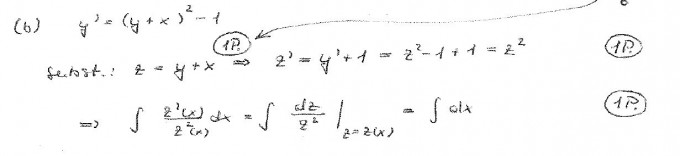 (b) y' = (y+x)² - 1
1P.
subst.: z = y+x ⇒ z' = y'+1 = z²-1+1 = z² 1P.
⇒ ∫ z'(x)/z²(x) dx = ∫ dz/z² |z=z(x) = ∫ dx 1P.